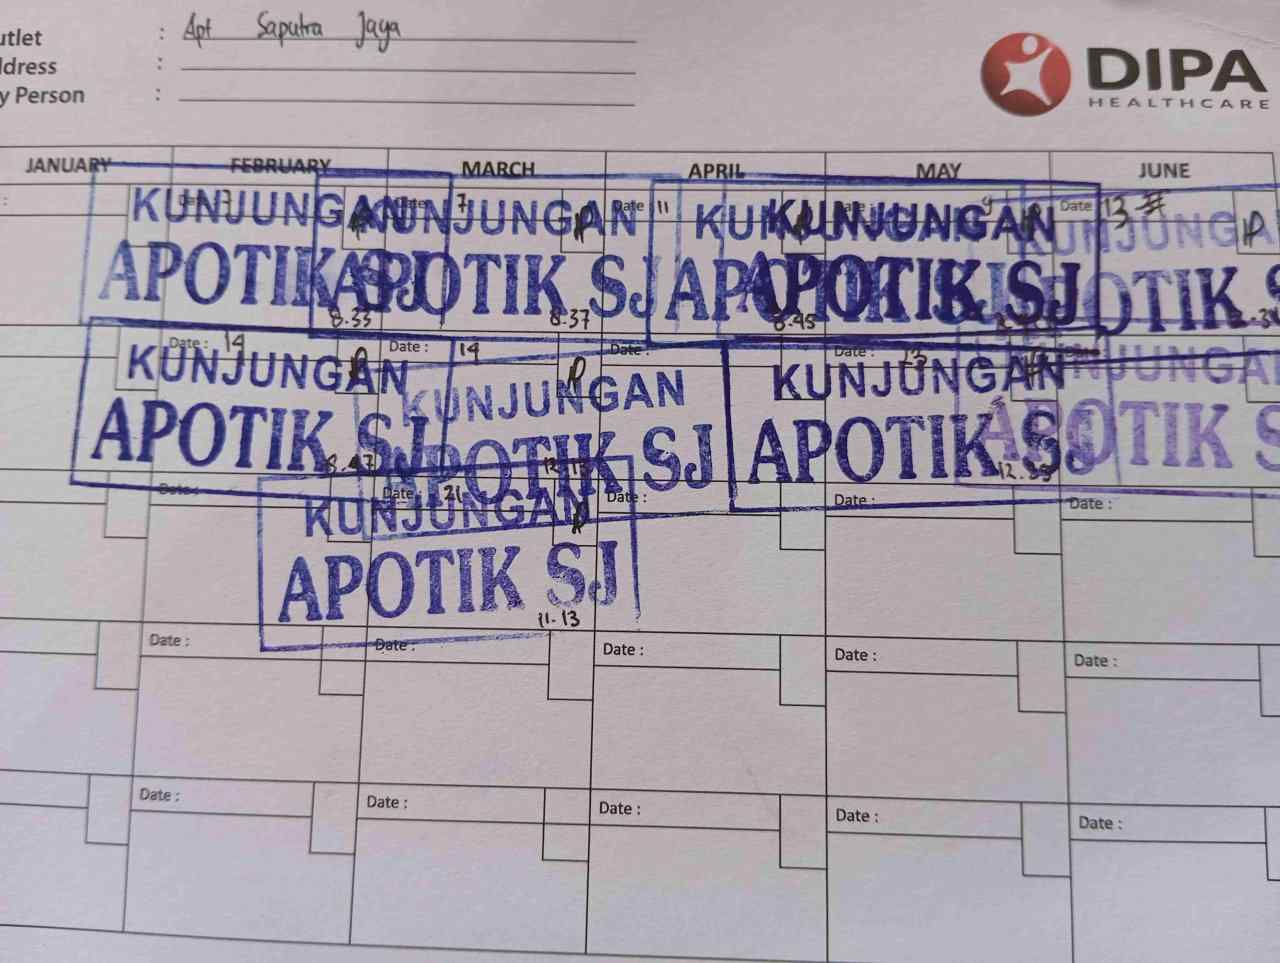 utlet : Apt Saputra Jaya
ddress :
y Person :
DIPA
HEALTHCARE
JANUARY FEBRUARY MARCH APRIL MAY JUNE
: Date : 7 Date : 7 Date : 11 Date : 9 Date : 13
KUNJUNGAN KUNJUNGAN KUNJUNGAN KUNJUNGAN KUNJUNGA
APOTIK SJ APOTIK SJ APOTIK SJ APOTIK SJ APOTIK S
8.33 8.37 8.45
Date : 14 Date : 14 Date : Date : 13
KUNJUNGAN KUNJUNGAN KUNJUNGAN KUNJUNGA
APOTIK SJ APOTIK SJ APOTIK SJ APOTIK S
8.47 12.35
Date : Date : 21 Date : Date : Date :
KUNJUNGAN
APOTIK SJ
11.13
Date : Date : Date : Date : Date :
Date : Date : Date : Date : Date :